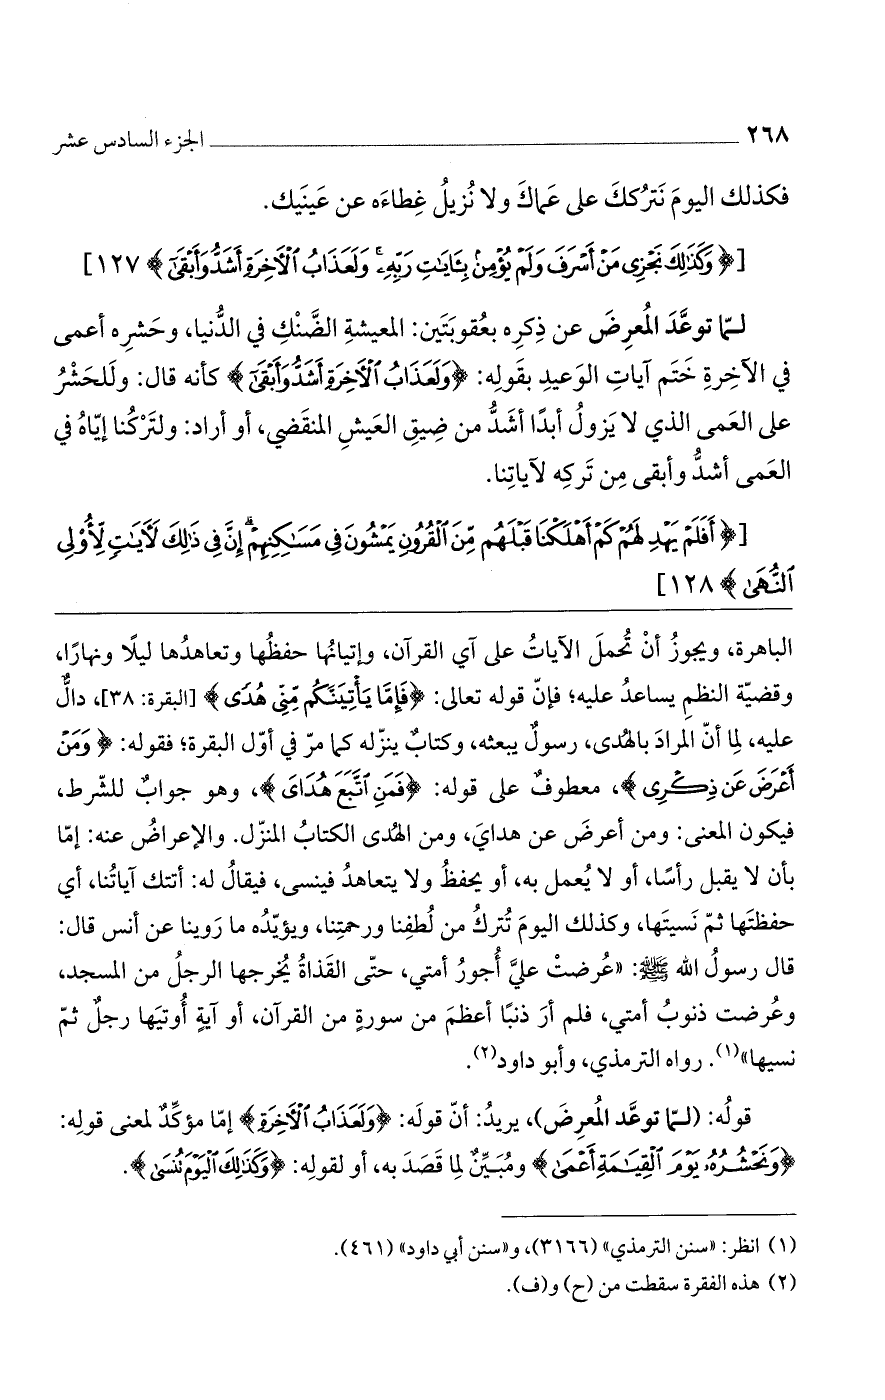 ٢٦٨ ــــــــــــــــــــــــــــــــــــــــ الجزء السادس عشر
فكذلك اليومَ نَترُككَ على عَماكَ ولا نُزيلُ غِطاءَه عن عَينَيك.
[﴿ وَكَذَٰلِكَ نَجْزِى مَنْ أَسْرَفَ وَلَمْ يُؤْمِنۢ بِـَٔايَٰتِ رَبِّهِۦ ۚ وَلَعَذَابُ ٱلْـَٔاخِرَةِ أَشَدُّ وَأَبْقَىٰٓ ﴾ ١٢٧]
لـمّا توعَّدَ المُعرِضَ عن ذِكرِه بعُقوبتَين: المعيشةِ الضَّنْكِ في الدُّنيا، وحَشرِه أعمى
في الآخِرةِ خَتَم آياتِ الوَعيدِ بقَولِه: ﴿وَلَعَذَابُ ٱلْـَٔاخِرَةِ أَشَدُّ وَأَبْقَىٰٓ ﴾ كأنه قال: ولَلحَشْرُ
على العَمى الذي لا يَزولُ أبدًا أشَدُّ من ضِيقِ العَيشِ المنقَضي، أو أراد: ولتَرْكُنا إيّاهُ في
العَمى أشدُّ وأبقى مِن تَركِه لآياتِنا.
[﴿ أَفَلَمْ يَهْدِ لَهُمْ كَمْ أَهْلَكْنَا قَبْلَهُم مِّنَ ٱلْقُرُونِ يَمْشُونَ فِى مَسَٰكِنِهِمْ ۗ إِنَّ فِى ذَٰلِكَ لَـَٔايَٰتٍ لِّأُو۟لِى
ٱلنُّهَىٰ ﴾ ١٢٨]
الباهرة، ويجوزُ أنْ تُحملَ الآياتُ على آي القرآن، وإتيانُها حفظُها وتعاهدُها ليلًا ونهارًا،
وقضيّة النظمِ يساعدُ عليه؛ فإنّ قوله تعالى: ﴿فَإِمَّا يَأْتِيَنَّكُم مِّنِّى هُدًى ﴾ [البقرة: ٣٨]، دالٌّ
عليه، لِما أنّ المرادَ بالهُدى، رسولٌ يبعثه، وكتابٌ ينزّله كما مرّ في أوّل البقرة؛ فقوله: ﴿ وَمَنْ
أَعْرَضَ عَن ذِكْرِى ﴾، معطوفٌ على قوله: ﴿فَمَنِ ٱتَّبَعَ هُدَاىَ ﴾، وهو جوابٌ للشّرط،
فيكون المعنى: ومن أعرضَ عن هدايَ، ومن الهُدى الكتابُ المنزّل. والإعراضُ عنه: إمّا
بأن لا يقبل رأسًا، أو لا يُعمل به، أو يحفظُ ولا يتعاهدُ فينسى، فيقالُ له: أتتك آياتُنا، أي
حفظتَها ثمّ نَسيتَها، وكذلك اليومَ تُتركُ من لُطفِنا ورحمتِنا، ويؤيّدُه ما رَوينا عن أنس قال:
قال رسولُ الله ﷺ: «عُرضتْ عليَّ أُجورُ أمتي، حتّى القَذاةُ يُخرجها الرجلُ من المسجد،
وعُرضت ذنوبُ أمتي، فلم أرَ ذنبًا أعظمَ من سورةٍ من القرآن، أو آيةٍ أُوتيَها رجلٌ ثمّ
نسيها»(١). رواه الترمذي، وأبو داود(٢).
قولُه: (لـمّا توعَّد المُعرِضَ)، يريدُ: أنّ قولَه: ﴿وَلَعَذَابُ ٱلْـَٔاخِرَةِ ﴾ إمّا مؤكِّدٌ لمعنى قولِه:
﴿وَنَحْشُرُهُۥ يَوْمَ ٱلْقِيَٰمَةِ أَعْمَىٰ ﴾ ومُبَيِّنٌ لِما قَصَدَ به، أو لقولِه: ﴿وَكَذَٰلِكَ ٱلْيَوْمَ تُنسَىٰ ﴾.
(١) انظر: «سنن الترمذي» (٣١٦٦)، و«سنن أبي داود» (٤٦١).
(٢) هذه الفقرة سقطت من (ح) و(ف).